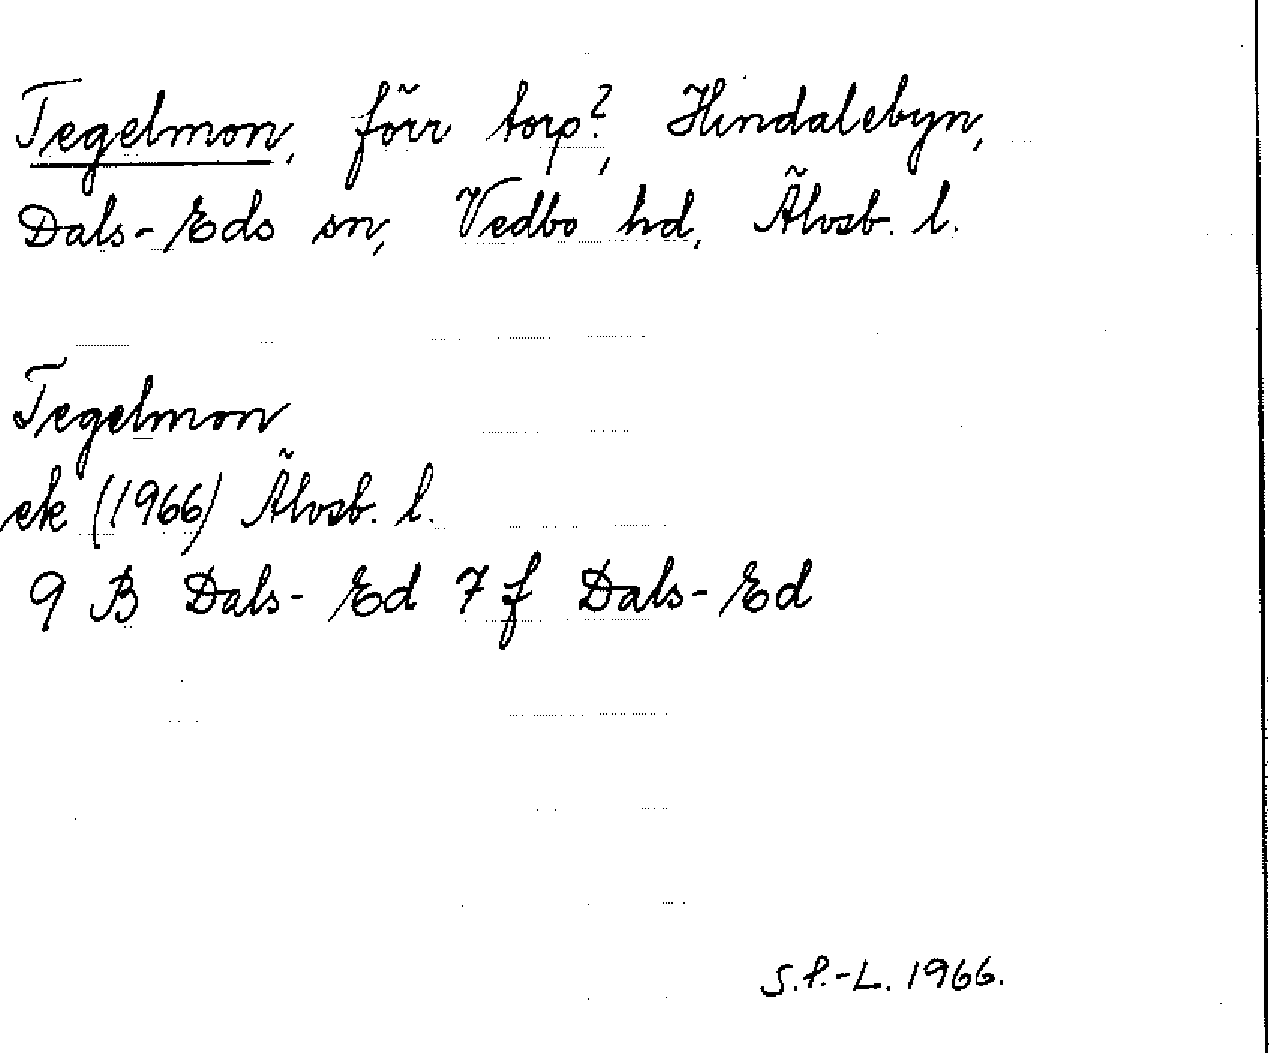 Tegelmon, förr torp?, Hindalebyn,
Dals-Eds sn, Vedbo hd, Älvsb. l.
Tegelmon
ek (1966) Älvsb. l.
9 B Dals-Ed 7 f Dals-Ed
S.P.-L. 1966.